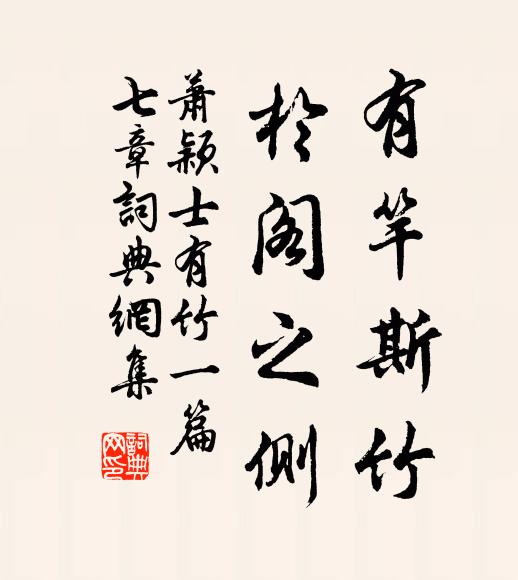 有竿斯竹
於阁之侧
萧颖士有竹一篇
七章词典网集
词典网印